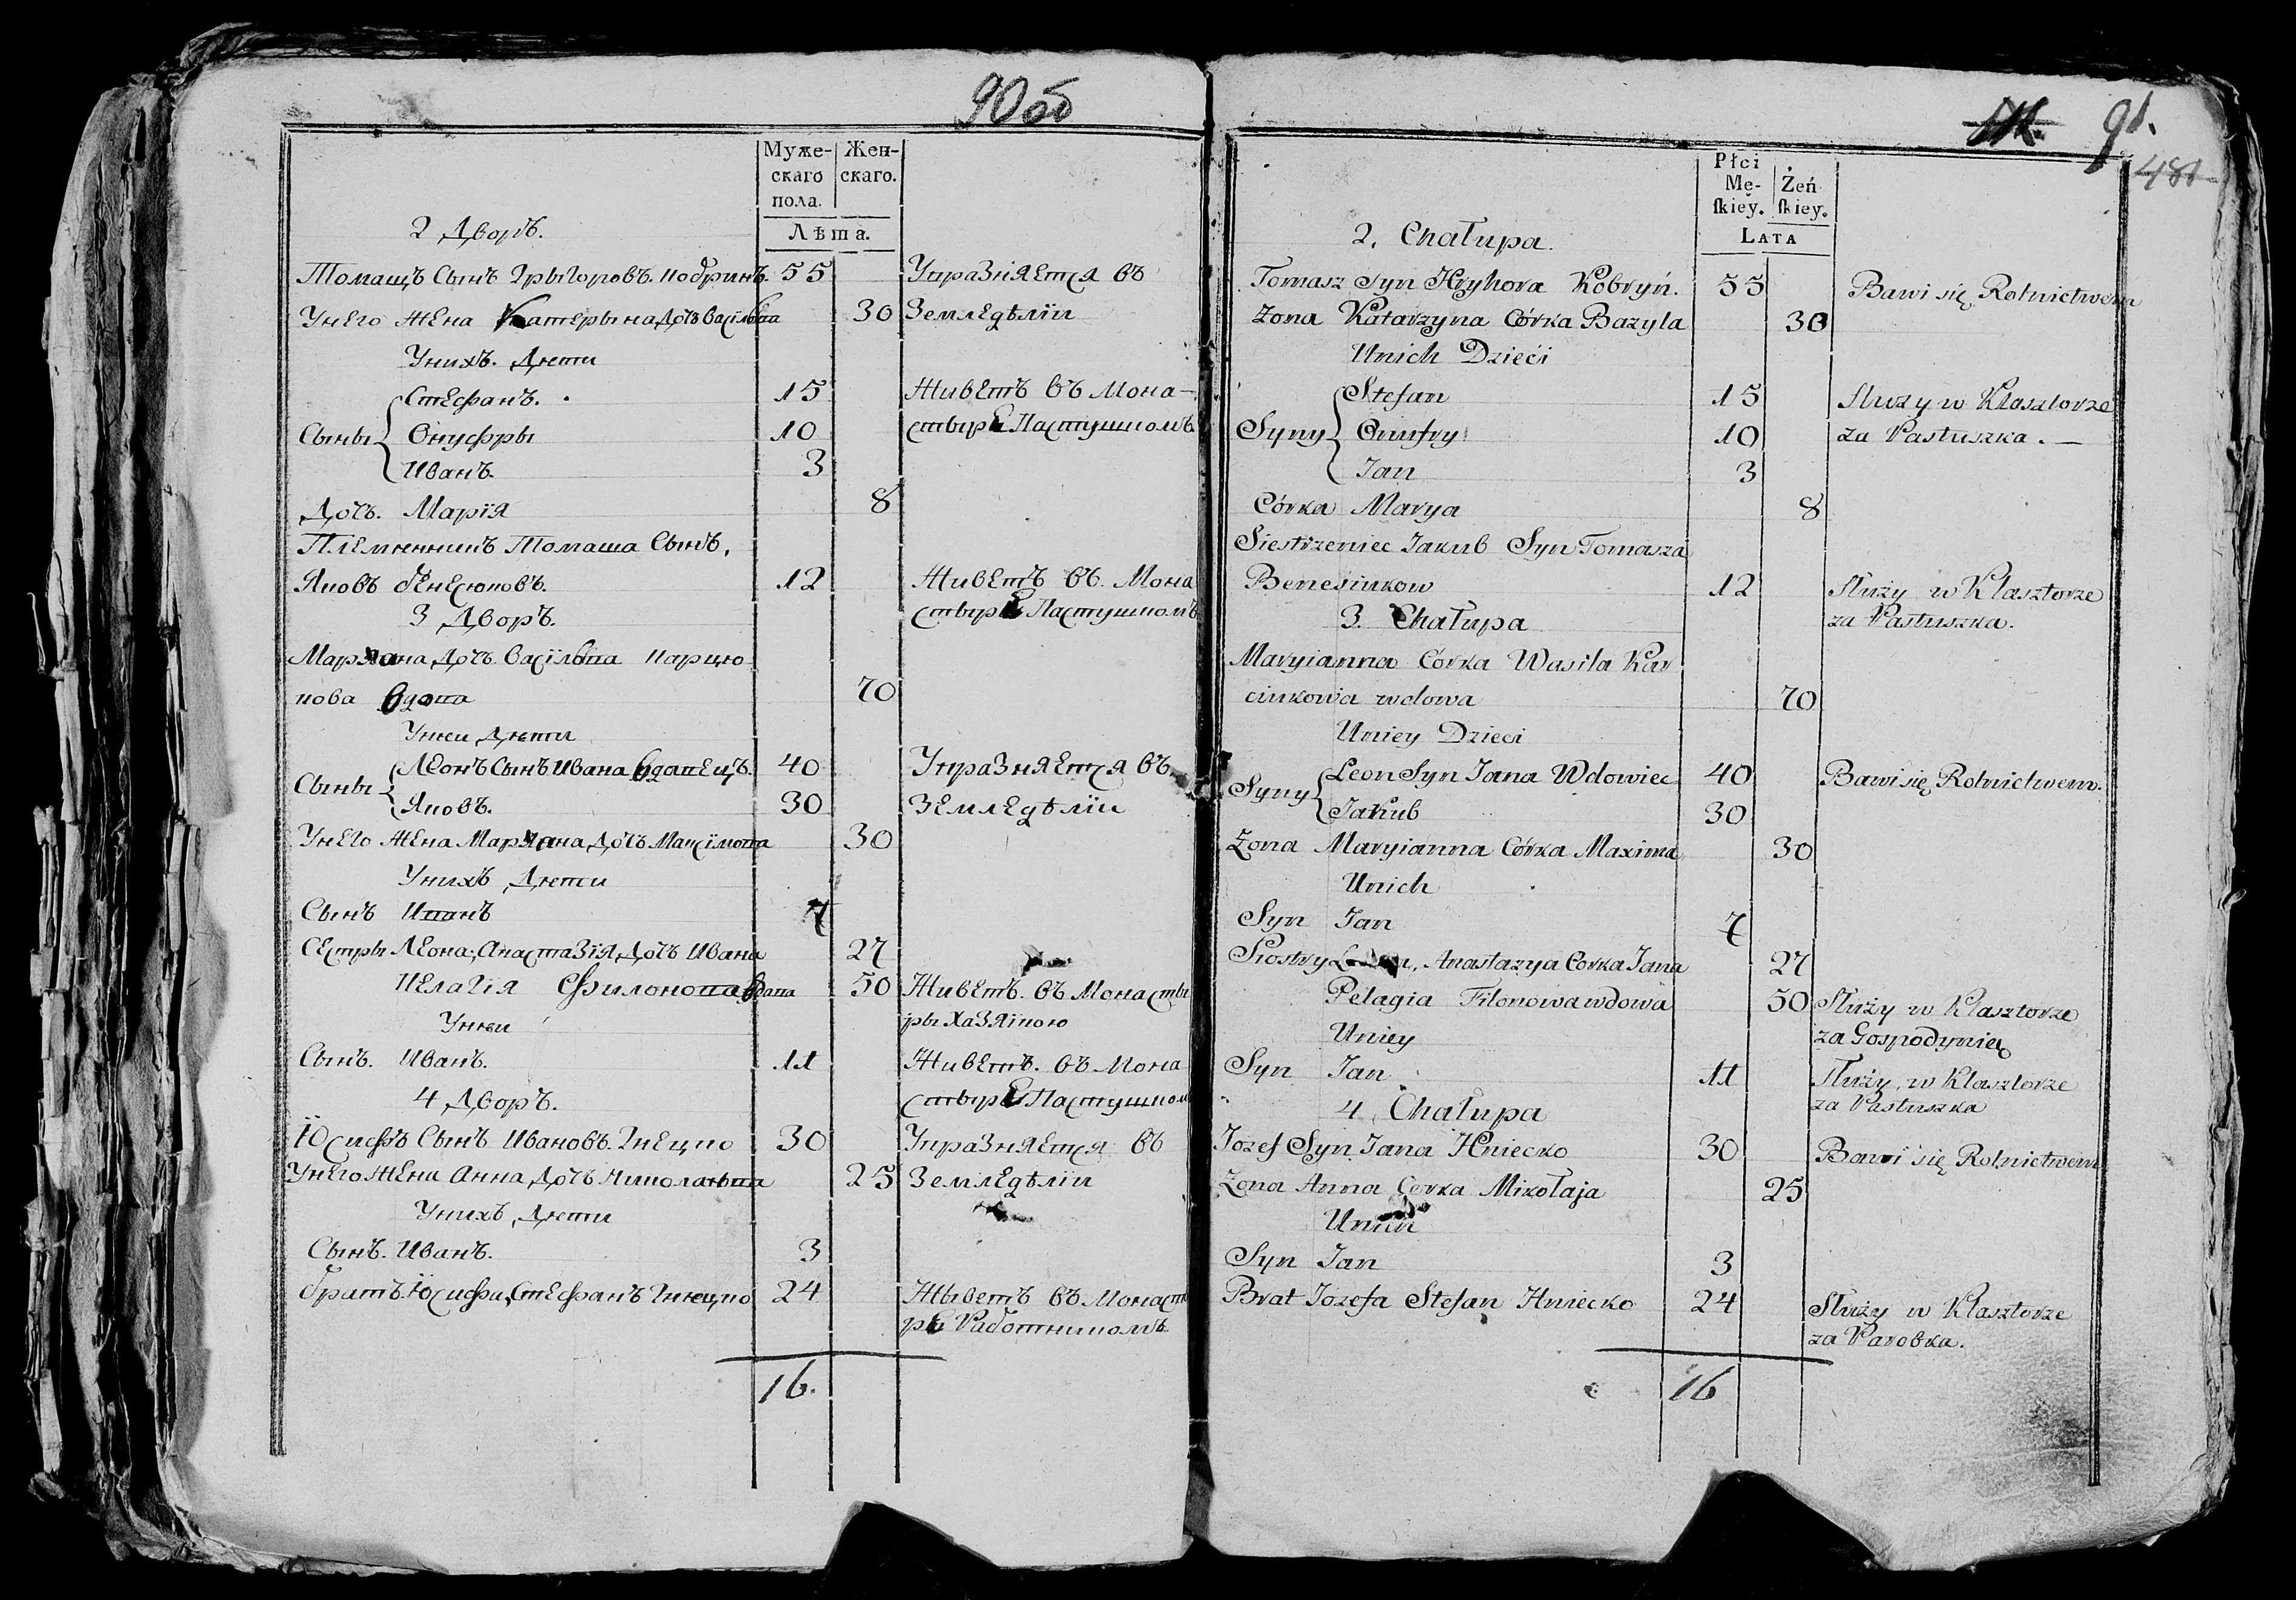 90 об
Муже-
скаго
пола.
Жен-
скаго.
Лѣта.
2 Дворъ.
Томашъ Сынъ Грыгоровъ. Кобринъ. 55 Упразняется въ
Унего жена Катерына Дочъ Васїлѣва 30 Земледѣлїи
Унихъ. Дѣти
Стефанъ. 15 Живетъ въ Мона-
Сыны Онуфры 10 стырѣ Пастушкомъ
Иванъ. 3
Дочъ. Марїя 8
Племѣнникъ Томаша Сынъ,
Яковъ Бенесюковъ. 12 Живетъ въ. Мона
3 Дворъ. стырѣ Пастушкомъ
Маряана Дочъ. Васїлѣва Карцю
кова вдова 70
Унѣи Дѣти
Леонъ Сынъ Ивана вдавецъ. 40 Упразняется въ
Сыны Яковъ. 30 Земледѣлїи
Унего жена Маряана Дочъ Максїмова 30
Унихъ Дѣти
Сынъ Иванъ 7
Сестры Леона, Анастазїя Дочъ Ивана 27
Пелагїя Филонова вдава 50 Живетъ. въ Монасты
Унѣи ры Хазяїкою
Сынъ. Иванъ. 11 Живетъ. въ Мона
4 Дворъ. стырѣ Пастушком
Юсифъ Сынъ Ивановъ. Гнецко 30 Упразняется въ
Унего жена Анна Дочъ Миколаѣва 25 Земледѣлїи
Унихъ Дѣти
Сынъ. Иванъ. 3
Братъ. Юсифа, Стефанъ Гнѣцко 24 Жыветъ въ Монаст
рѣ Работникомъ
16.
91.
481
Płci
Mę-
ſkiey.
Żeń
ſkiey.
LATA
2. Chałupa.
Tomasz Syn Hryhora Kobryń. 55 Bawi się Rolnictwem
Żona Katarzyna Córka Bazyla 30
Unich Dzieći
Stefan 15 Służy w Klasztorze
Syny Onufry 10 za Pastuszka.—
Jan 3
Córka Marya 8
Siestrzeniec Jakub Syn Tomasza
Benesiukow 12 Służy w Klasztorze
3. Chałupa za Pastuszka.
Maryianna Córka Wasila Kar
ciukowa wdowa 70
Uniey Dzieci
Leon Syn Jana Wdowiec 40 Bawi się Rolnictwem.
Syny Jakub 30
Żona Maryianna Córka Maxima 30
Unich
Syn Jan 7
Siostry Leona, Anastazya Corka Jana 27
Pelagia Filonowa wdowa 50 Służy w Klasztorze
Uniey za Gospodynię
Syn Jan 11 Służy w Klasztorze
4 Chałupa za Pastuszka
Jozef Syn Jana Hniecko 30 Bawi się Rolnictwem
Żona Anna Corka Mikołaja 25
Unich
Syn Jan 3
Brat Jozefa Stefan Hniecko 24 Służy w Klasztorze
za Parobka.
16